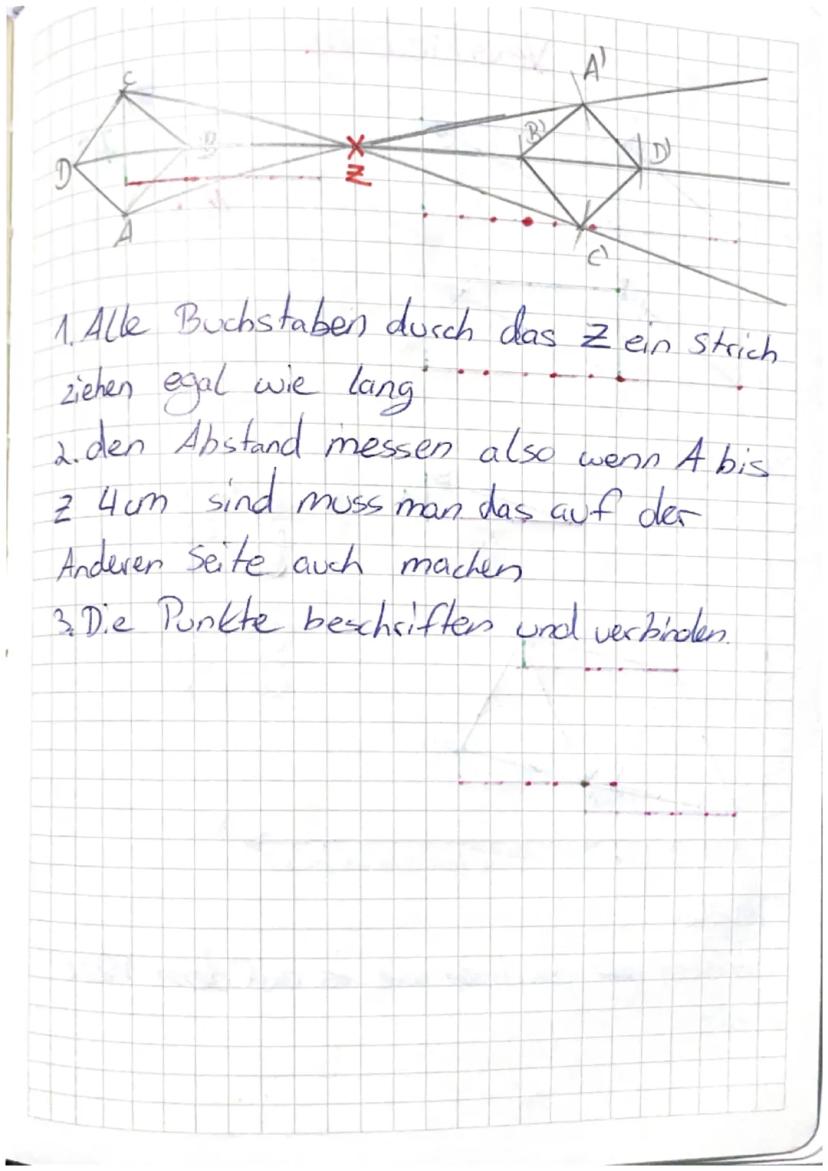 C
A'
D
B
B'
D'
Z
A
C'
1. Alle Buchstaben durch das Z ein strich
ziehen egal wie lang
2. den Abstand messen also wenn A bis
Z 4cm sind muss man das auf der
Anderen Seite auch machen
3. Die Punkte beschriften und verbinden.